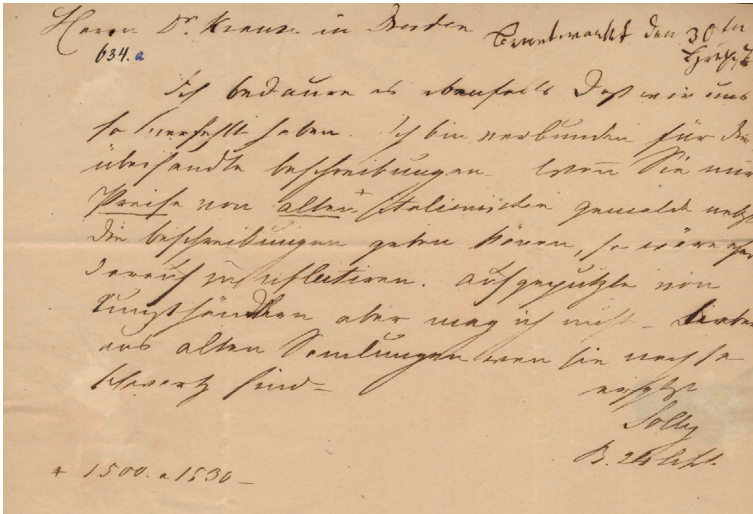 Herrn Dr. Krause in Dresden den 30ten
634.a
Ich bedaure es ebenfalls daß wir uns
so verfehlt haben. Ich bin verbunden für die
übersandte beschreibungen. Wen Sie mir
Preise von alten + Italienischen gemälde nebst
die beschreibungen geben könen, so wäre eher
darauf zu reflectiren. Aufgeputzte von
Kunsthändlern aber mag ich nicht – Lieber
aus alten Samlungen wen sie noch so
schwartz sind –
Solly
+ 1500. a 1530 –